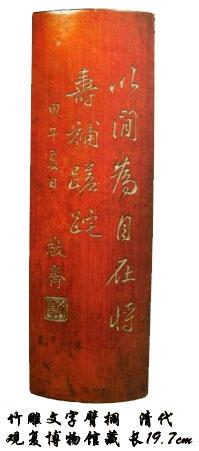 以闲为自在将
寿补蹉跎
甲午夏日
敬斋
竹雕文字臂搁 清代
观复博物馆藏 长19.7cm